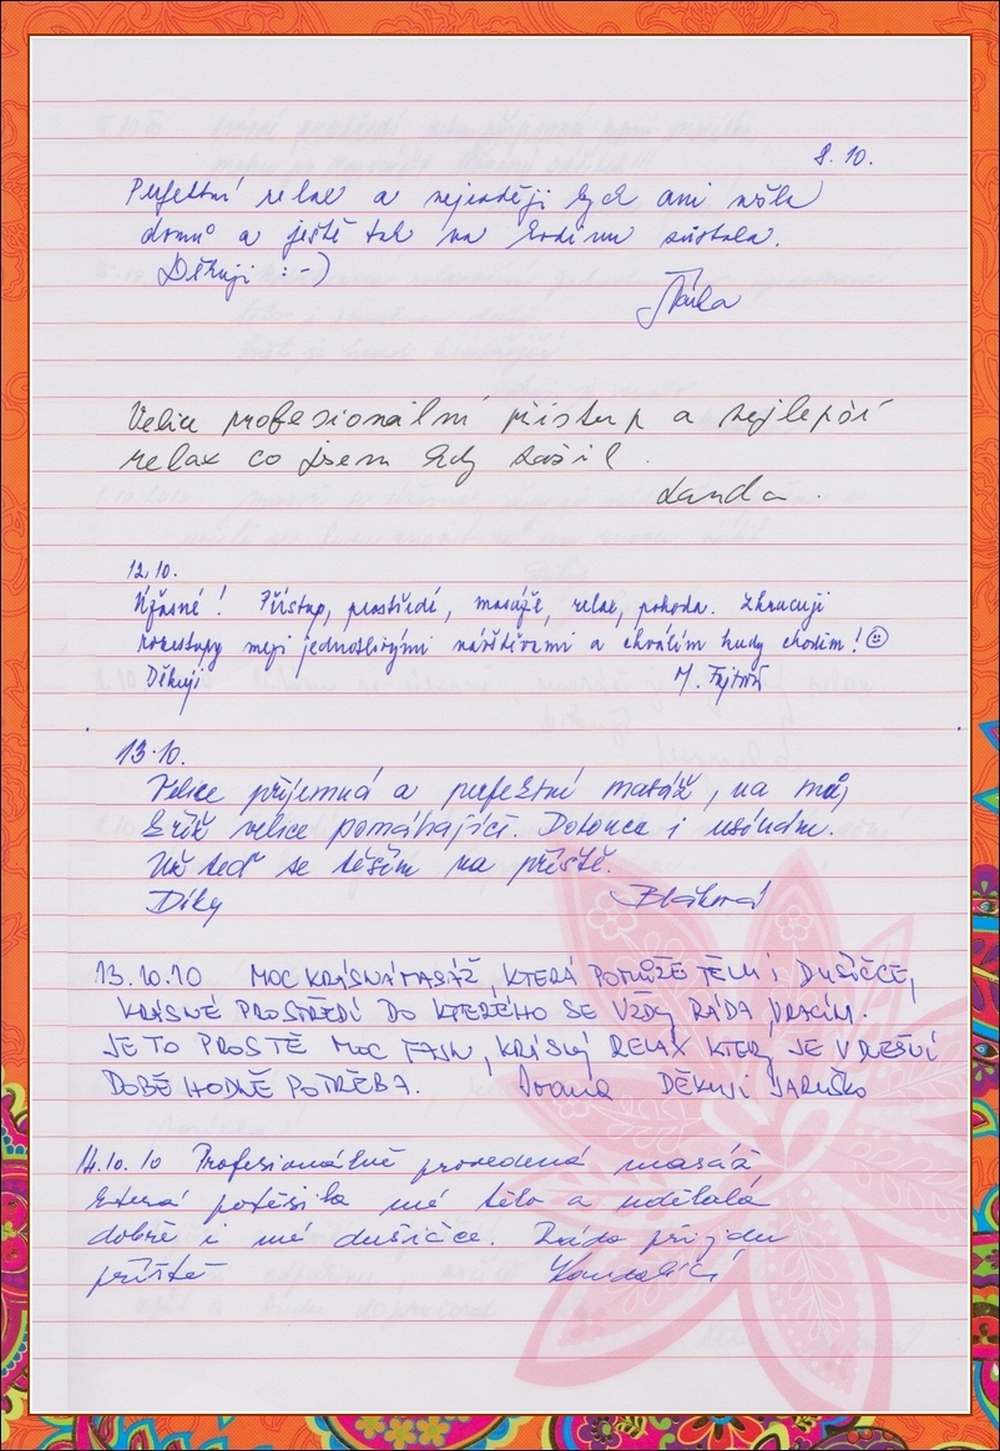 8. 10.
Perfektní relax a nejraději bych ani nešla
domů a ještě tak na hodinu zůstala.
Děkuji :-)
Šárka
Velice profesionální přístup a nejlepší
relax co jsem kdy zažil.
Landa.
12.10.
Úžasné! Přístup, prostředí, masáže, relax, pohoda. Zkracuji
rozestupy mezi jednotlivými návštěvami a chválím kudy chodím! ☺
Děkuji M.
13.10.
Velice příjemná a perfektní masáž, na můj
kříž velice pomáhající. Dokonce i usínám.
Už teď se těším na příště.
Díky
13.10.10 MOC KRÁSNÁ MASÁŽ, KTERÁ POMŮŽE TĚLU I DUŠIČCE,
KRÁSNÉ PROSTŘEDÍ DO KTERÉHO SE VŽDY RÁDA VRACÍM.
JE TO PROSTĚ MOC FAJN, KRÁSNÝ RELAX KTERÝ JE V DNEŠNÍ
DOBĚ HODNĚ POTŘEBA. Ivana DĚKUJI JARUŠKO
14.10.10 Profesionálně provedená masáž
která potěšila mé tělo a udělala
dobře i mé dušičce. Ráda přijdu
příště